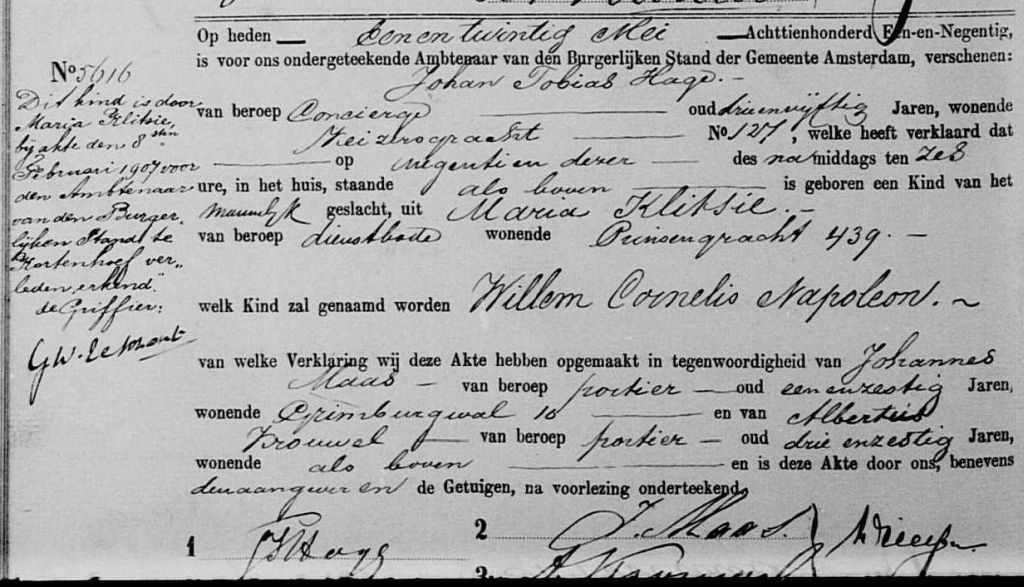 Op heden Eenentwintig Mei Achttienhonderd Een-en-Negentig,
is voor ons ondergeteekende Ambtenaar van den Burgerlijken Stand der Gemeente Amsterdam, verschenen:
Johan Tobias Hage.
van beroep Concierge oud drieenvijftig Jaren, wonende
Keizersgracht No 127, welke heeft verklaard dat
op negentien dezer des namiddags ten zes
ure, in het huis, staande als boven is geboren een Kind van het
mannelijk geslacht, uit Maria Klitsie.
van beroep dienstbode wonende Prinsengracht 439.
welk Kind zal genaamd worden Willem Cornelis Napoleon.
van welke Verklaring wij deze Akte hebben opgemaakt in tegenwoordigheid van Johannes
Maas van beroep portier oud eenenzestig Jaren,
wonende Grimburgwal 10 en van Albertus
Krouwel van beroep portier oud drie enzestig Jaren,
wonende als boven en is deze Akte door ons, benevens
den aangever en de Getuigen, na voorlezing onderteekend.
1 JTHage 2 J. Maas.
3
No 5616
Dit kind is door
Maria Klitsie,
bij akte den 8sten
Februari 1907 voor
den Ambtenaar
van den Burger-
lijken Stand te
Kortenhoef ver-
leden, erkend.
de Griffier: